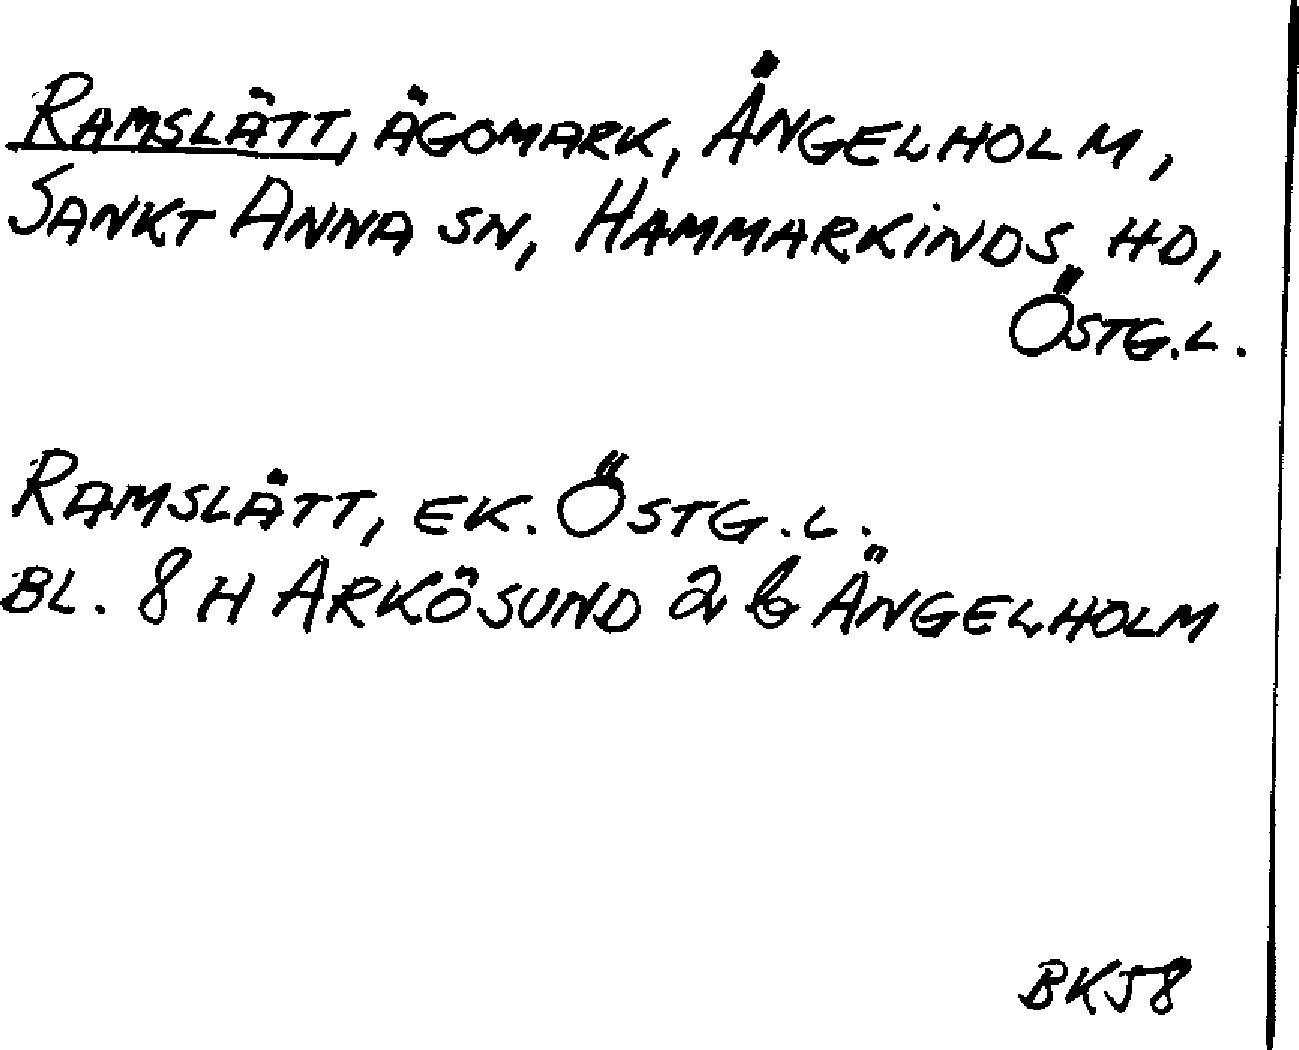 RAMSLÄTT, ÄGOMARK, ÄNGELHOLM,
SANKT ANNA SN, HAMMARKINDS HD,
ÖSTG.L.
RAMSLÄTT, EK. ÖSTG.L.
BL. 8 H ARKÖSUND 2 b ÄNGELHOLM
BK58